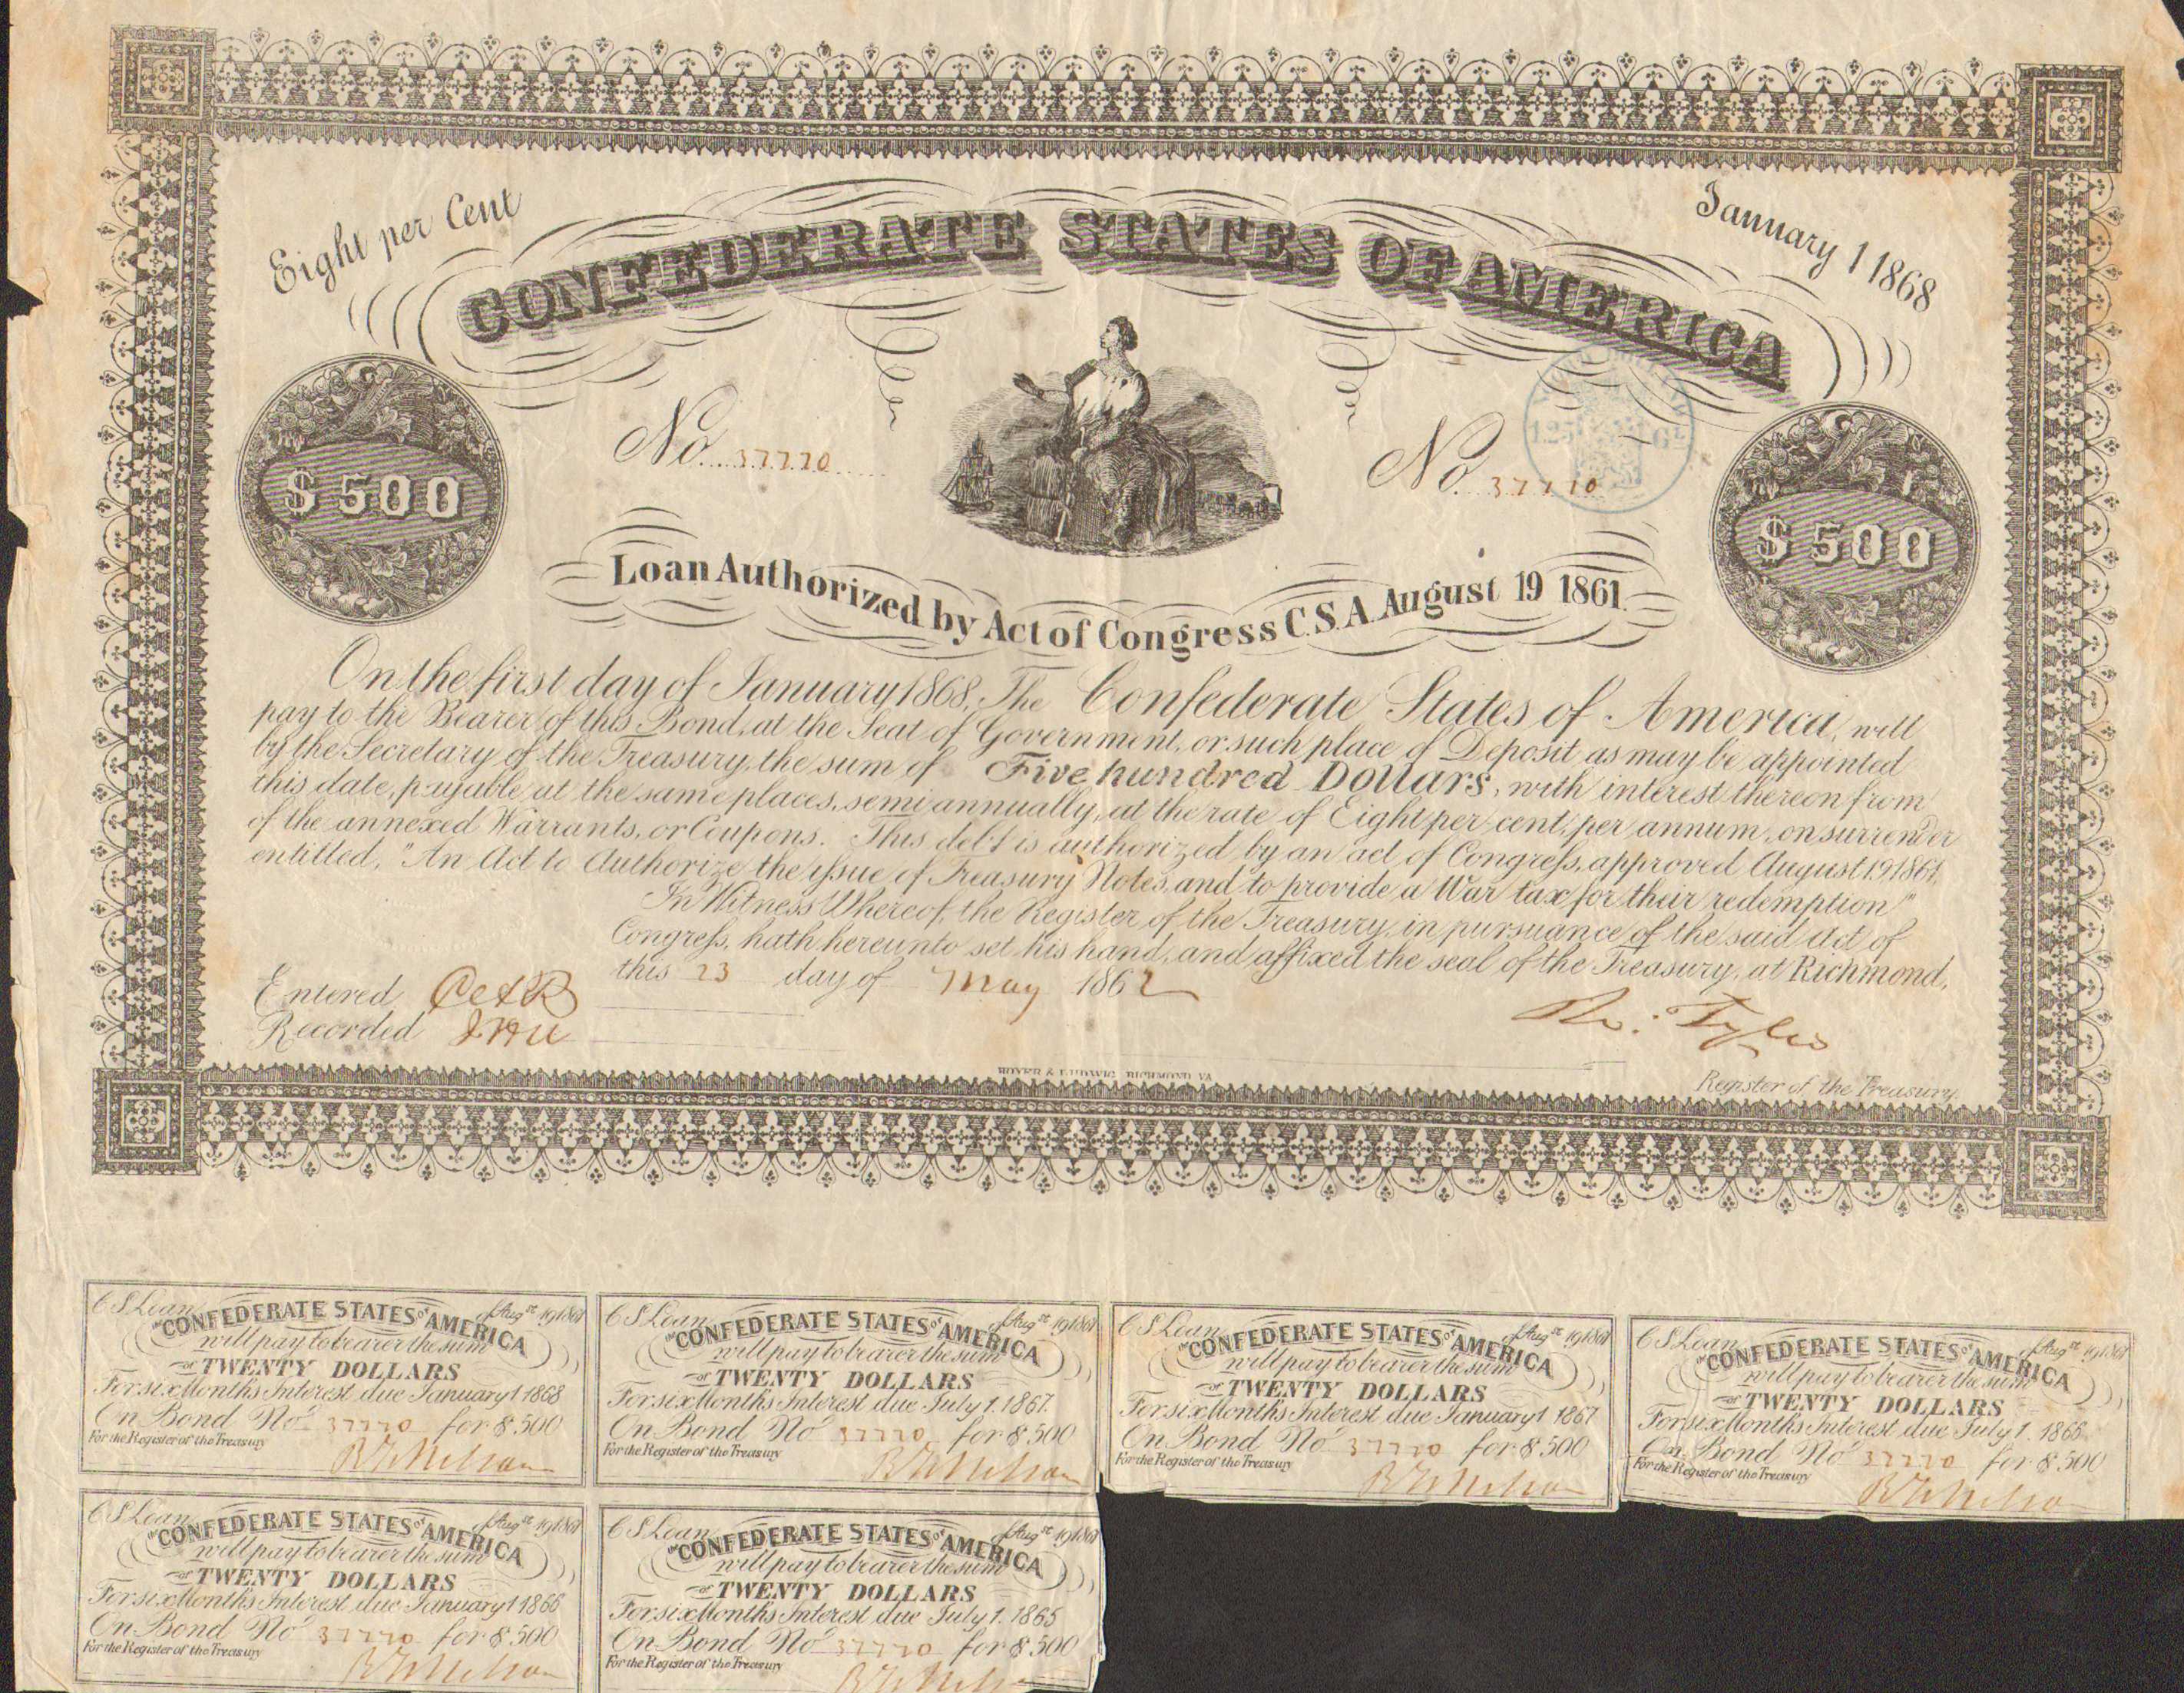 Eight per Cent
January 1 1868
CONFEDERATE STATES OF AMERICA
$500
No. 37770
No. 37770
$500
Loan Authorized by Act of Congress C.S.A. August 19 1861.
On the first day of January 1868, The Confederate States of America, will
pay to the Bearer of this Bond, at the Seat of Government, or such place of Deposit as may be appointed
by the Secretary of the Treasury, the sum of Five hundred Dollars, with interest thereon from
this date, payable at the same places, semi annually, at the rate of Eight per cent, per annum, on surrender
of the annexed Warrants, or Coupons. This debt is authorized by an act of Congress, approved August 19 1861,
entitled, "An Act to Authorize the issue of Treasury Notes, and to provide a War tax for their redemption"
In Witness Whereof, the Register of the Treasury, in pursuance of the said Act of
Congress, hath hereunto set his hand, and affixed the seal of the Treasury, at Richmond,
this 23 day of May 1862
Entered
Recorded
Ro: Tyler
Register of the Treasury.
HOYER & LUDWIG RICHMOND VA
C S Loan of Augst 19 1861
The CONFEDERATE STATES of AMERICA
will pay to bearer the sum
of TWENTY DOLLARS
For six Months Interest due January 1 1868
On Bond No 37770 for $500
For the Register of the Treasury
C S Loan of Augst 19 1861
The CONFEDERATE STATES of AMERICA
will pay to bearer the sum
of TWENTY DOLLARS
For six Months Interest due July 1. 1867.
On Bond No 37770 for $500
For the Register of the Treasury
C S Loan of Augst 19 1861
The CONFEDERATE STATES of AMERICA
will pay to bearer the sum
of TWENTY DOLLARS
For six Months Interest due January 1 1867
On Bond No 37770 for $500
For the Register of the Treasury
C S Loan of Augst 19 1861
The CONFEDERATE STATES of AMERICA
will pay to bearer the sum
of TWENTY DOLLARS
For six Months Interest due July 1. 1866
On Bond No 37770 for $500
For the Register of the Treasury
C S Loan of Augst 19 1861
The CONFEDERATE STATES of AMERICA
will pay to bearer the sum
of TWENTY DOLLARS
For six Months Interest due January 1 1866
On Bond No 37770 for $500
For the Register of the Treasury
C S Loan of Augst 19 1861
The CONFEDERATE STATES of AMERICA
will pay to bearer the sum
of TWENTY DOLLARS
For six Months Interest due July 1. 1865
On Bond No 37770 for $500
For the Register of the Treasury